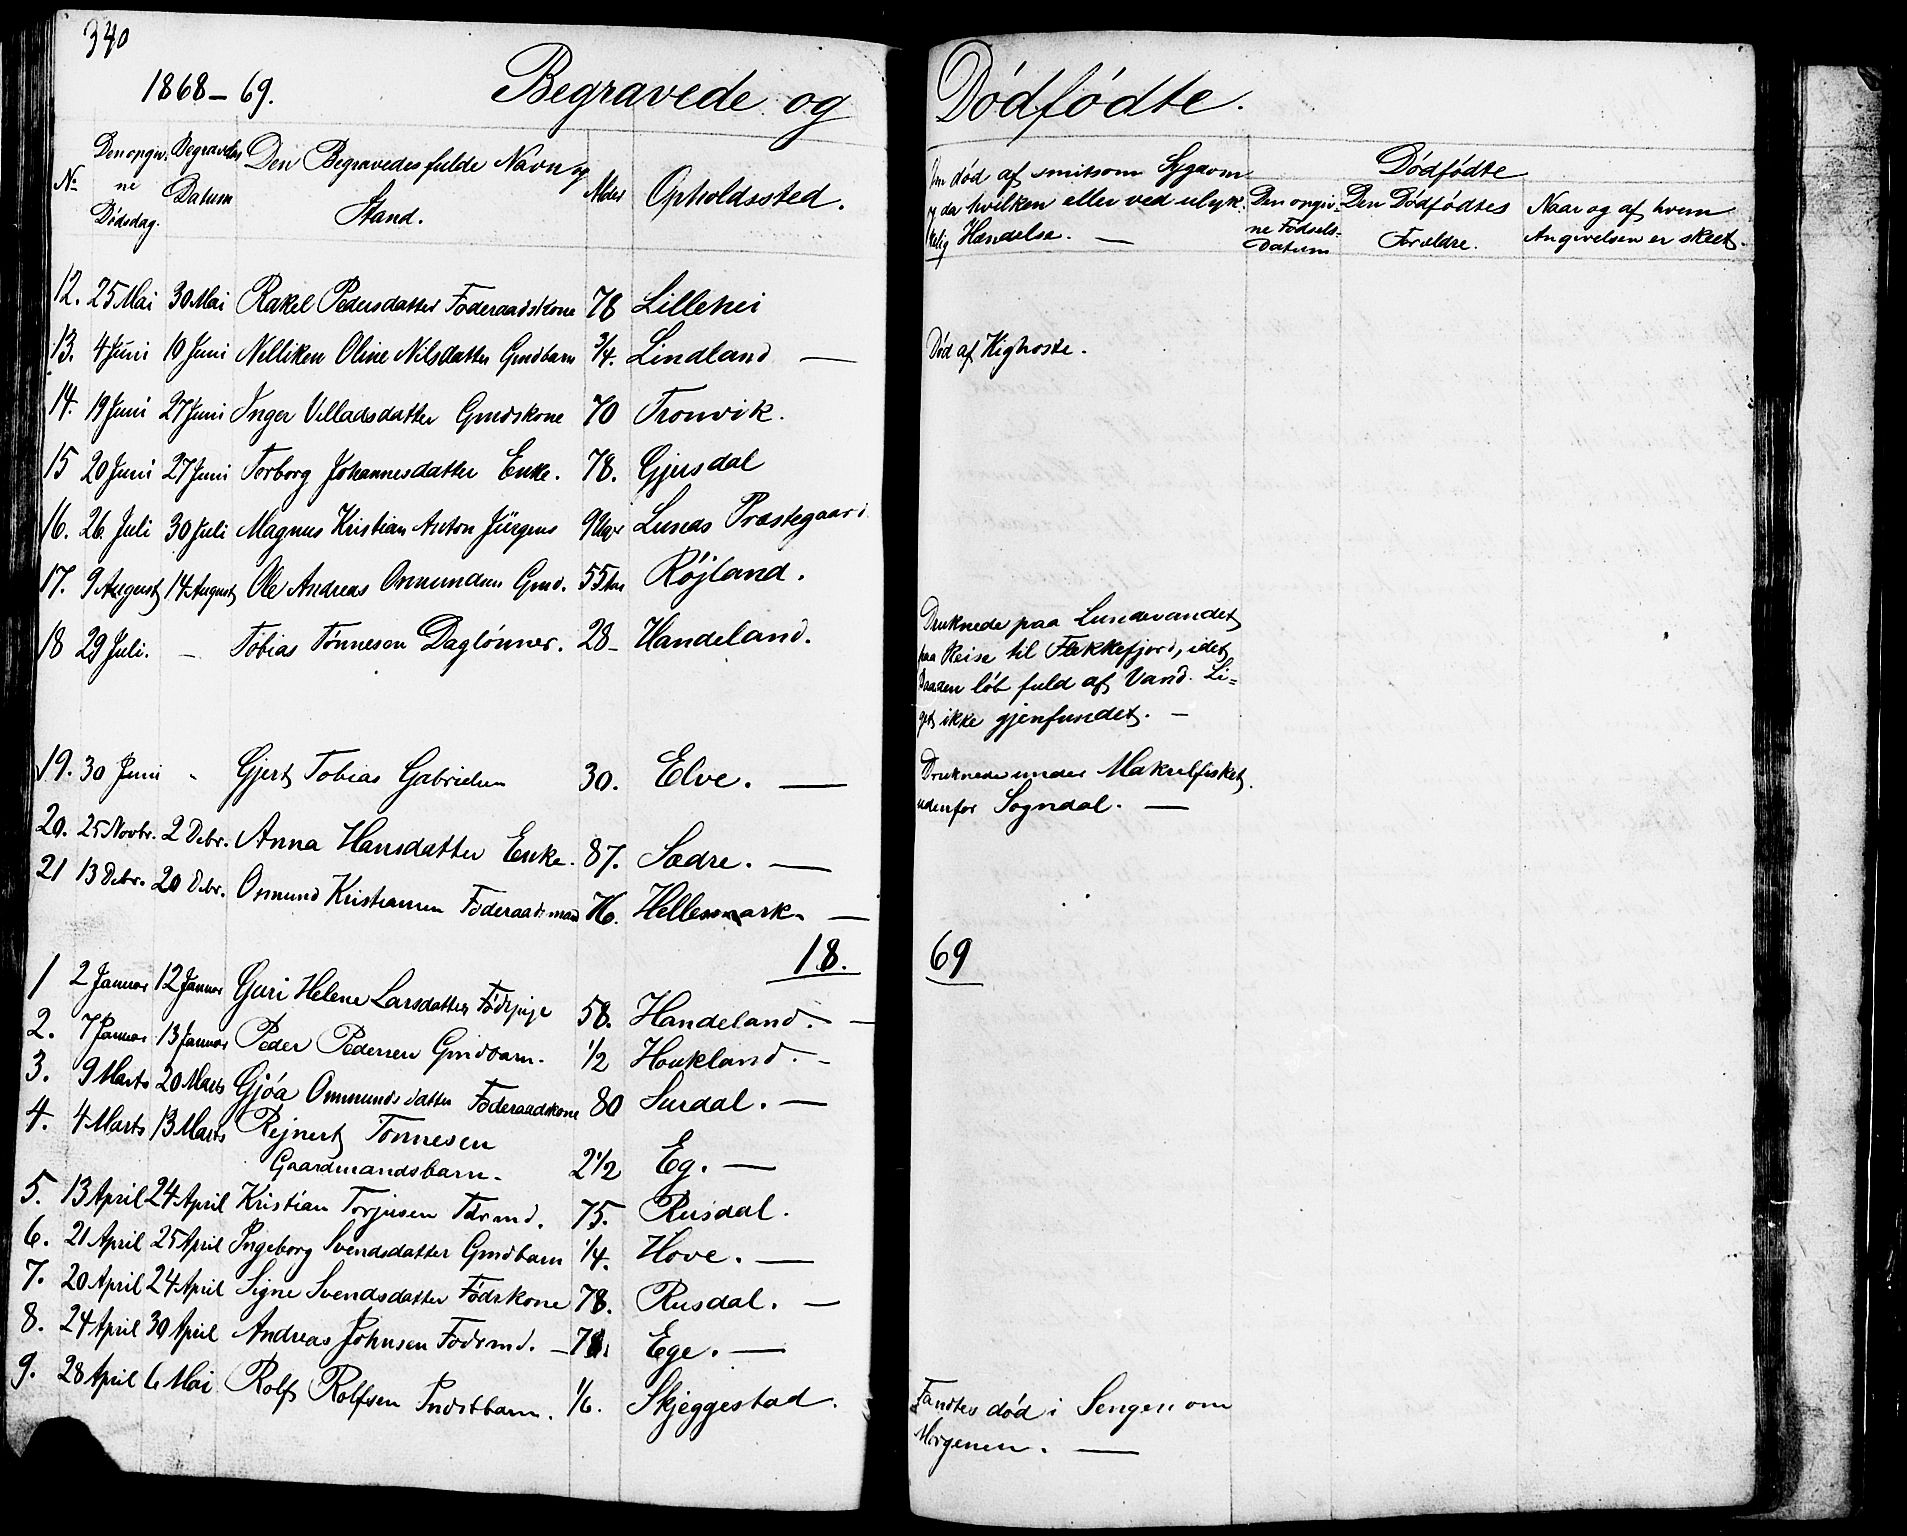 340
1868-69. Begravede og Dödfödte.
No Den opgivne Dödsdag. Begravelses Datum Den Begravedes fulde Navn og Stand. Alder Opholdssted. Om död af smitsom Sygdom og da hvilken eller ved ulykkelig Hændelse. — Dödfödte Den opgivne Födsels-Datum Den Dödfödtes Forældre. Naar og af hvem Angivelsen er skeet.
12. 25 Mai 30 Mai Rakel Pedersdatter Föderaadskone 78 Lillehei
13. 4 Juni 10 Juni Nelliken Oline Nilsdatter Gmdbarn 3/4. Lindland — Död af Kighoste.
14. 19 Juni 27 Juni Inger Villadsdatter Gmdskone 70 Tronvik.
15 20 Juni 27 Juni Torborg Johannesdatter Enke. 78. Gjersdal
16. 26. Juli 30 Juli Magnus Kristian Anton Jürgens Lunds Præstegaard
17. 9 August 14 August Ole Andreas Onmundsen Gmd. 55 Röjland.
18 29 Juli. — Tobias Tönnesen Daglönner. 28 - Handeland. Druknede paa Lundevandet
paa Reise til Flekkefjord, idet
Baaden löb fuld af Vand. Li=
get ikke gjenfundet. —
19. 30 Juni - Gjert Tobias Gabrielsen 30. Elve. — Druknede under Makrelfisket
udenfor Sogndal. —
20. 25 Novbr. 2 Debr. Anna Hansdatter Enke. 87. Sædre. —
21 13 Debr. 20 Debr. Onmund Kristiansen Föderaadsmand 76. Hellesmark. —
18. 69
1 2 Januar 12 Januar Guri Helene Larsdatter Födspige 58. Handeland. —
2. 7 Januar 13 Januar Peder Pedersen Gmdbarn. 1/2 Houkland. -
3. 9 Marts 20 Marts Gjöa Onmundsdatter Föderaadskone 80 Surdal. —
4. 4 Marts 13 Marts Rejnert Tönnesen
Gaardmandsbarn. 2 1/2 Eg. —
5. 13 April 24 April Kristian Torjusen Fdrmd. 75. Rusdal.
6. 21 April 25 April Ingeborg Svendsdatter Gmdbarn 1/4. Hove. —
7. 20 April 24 April Signe Svendsdatter Födskone 78. Rusdal. —
8. 24 April 30 April Andreas Johnsen Födrmd. — Ege. —
9. 28 April 6 Mai Rolf Rolfsen Indstbarn. 1/6. Skjeggestad. Fandtes död i Sengen om
Morgenen. —